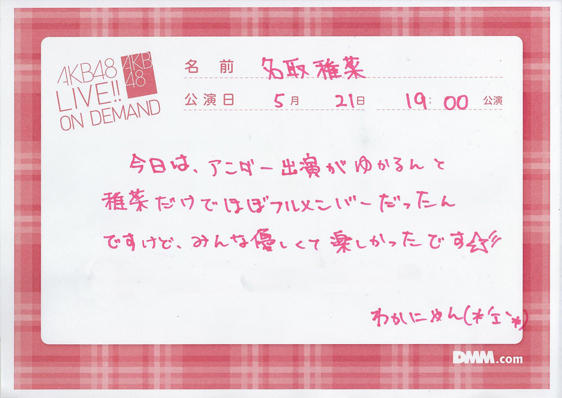 AKB48
LIVE!!
ON DEMAND
AKB
48
名前 名取稚菜
公演日 5月 21日 19:00 公演
今日は、アンダー出演がゆかるんと
稚菜だけでほぼフルメンバーだったん
ですけど、みんな優しくて楽しかったです☆彡
わかにゃん(*'ェ'*)
DMM.com